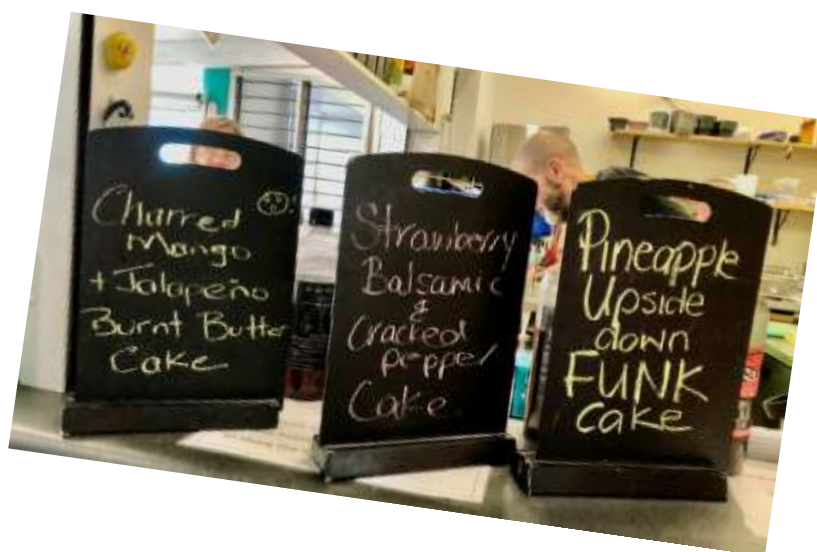 Charred
Mango
+ Jalapeño
Burnt Butter
Cake
Strawberry
Balsamic
&
Cracked
pepper
Cake
Pineapple
Upside
down
FUNK
cake